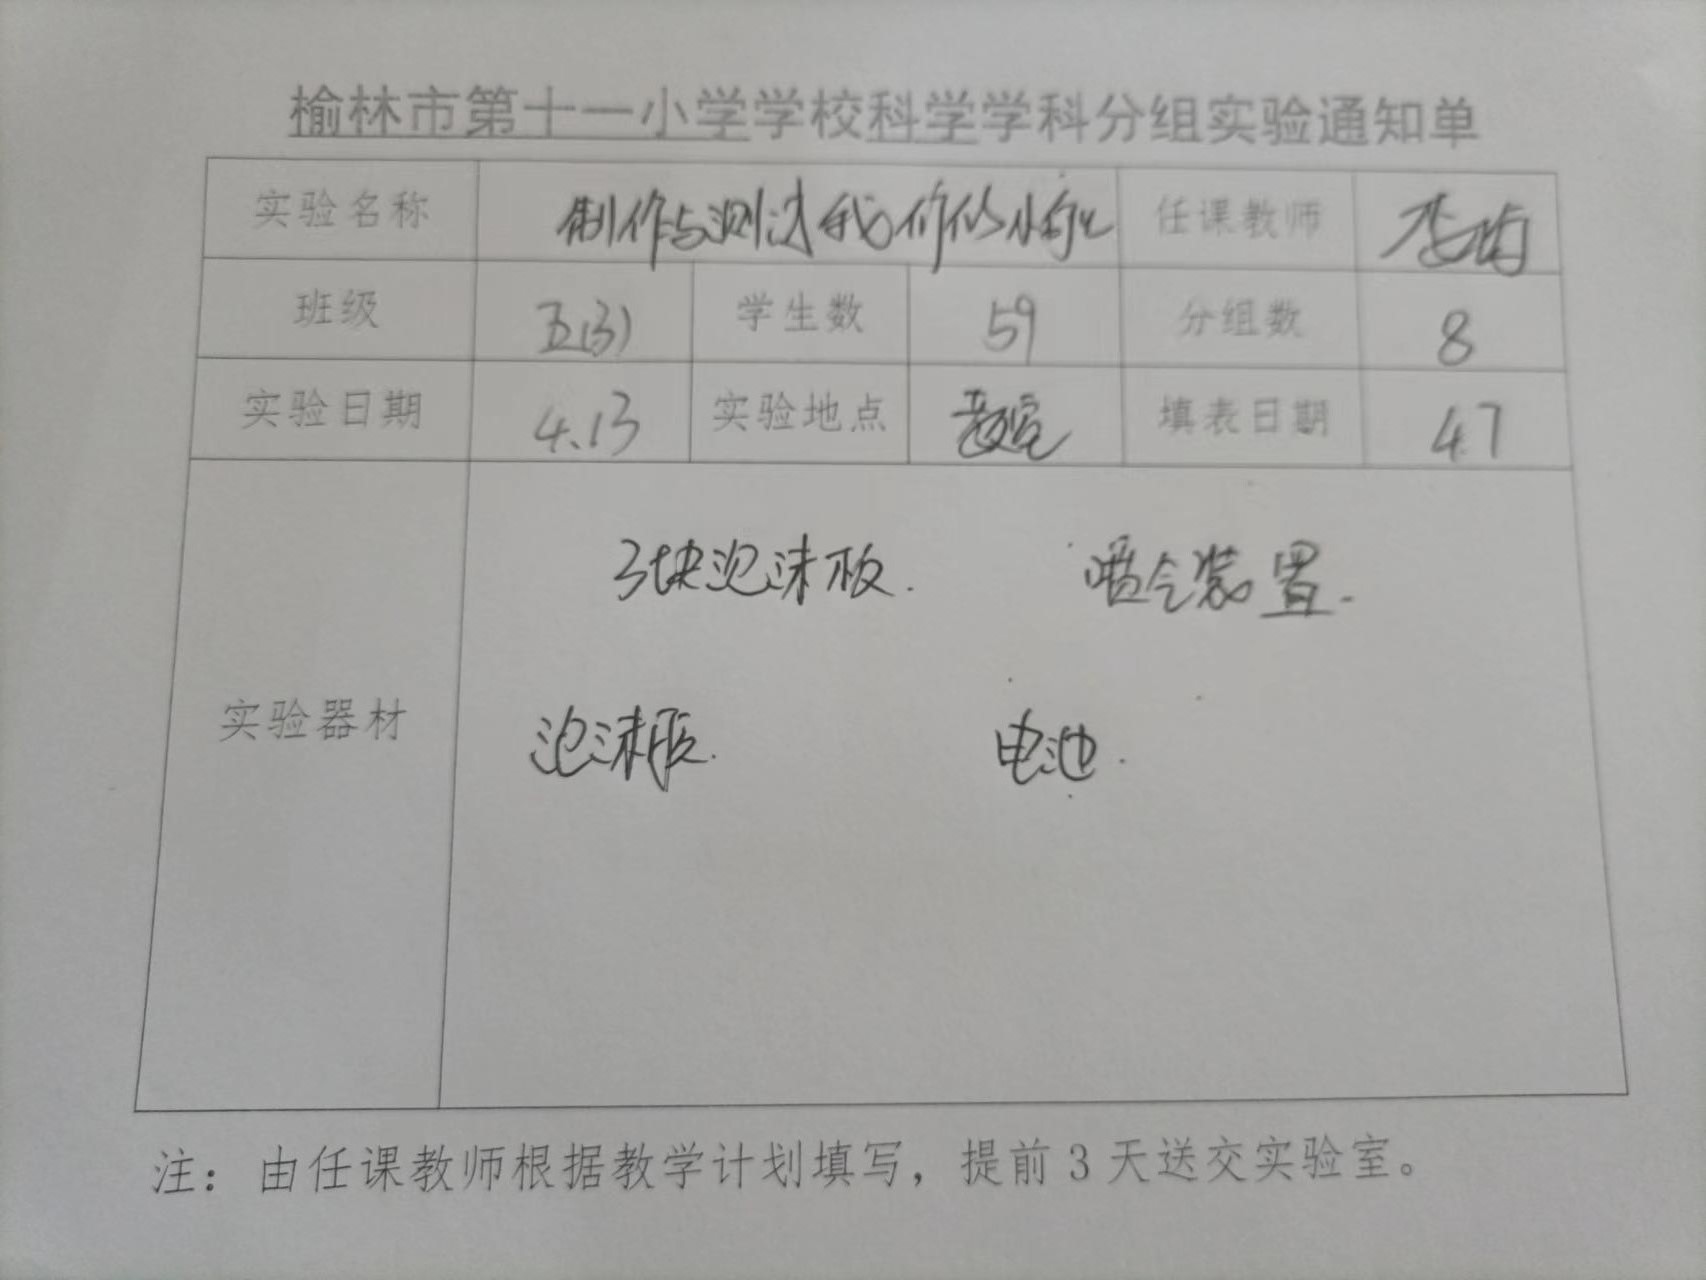 榆林市第十一小学学校科学学科分组实验通知单
实验名称 制作与测试我们的小船 任课教师 李
班级 五(3) 学生数 59 分组数 8
实验日期 4.13 实验地点 教室 填表日期 4.7
3块泡沫板. 喷气装置.
实验器材 泡沫胶. 电池.
注：由任课教师根据教学计划填写，提前3天送交实验室。